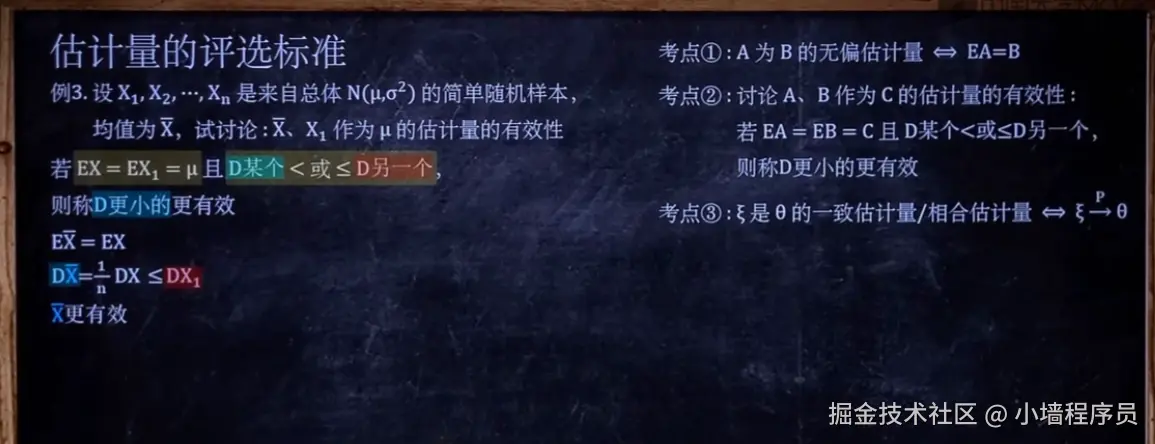 估计量的评选标准
例3. 设 X₁, X₂, ⋯, Xₙ 是来自总体 N(μ,σ²) 的简单随机样本，
均值为 X̅，试讨论 : X̅、X₁ 作为 μ 的估计量的有效性
若 EX = EX₁ = μ 且 D某个 < 或 ≤ D另一个，
则称D更小的更有效
EX̅ = EX
DX̅=1/n DX ≤ DX₁
X̅更有效
考点① : A 为 B 的无偏估计量 ⇔ EA=B
考点② : 讨论 A、B 作为 C 的估计量的有效性 :
若 EA = EB = C 且 D某个<或≤D另一个，
则称D更小的更有效
考点③ : ξ 是 θ 的一致估计量/相合估计量 ⇔ ξ P→ θ
掘金技术社区 @ 小墙程序员